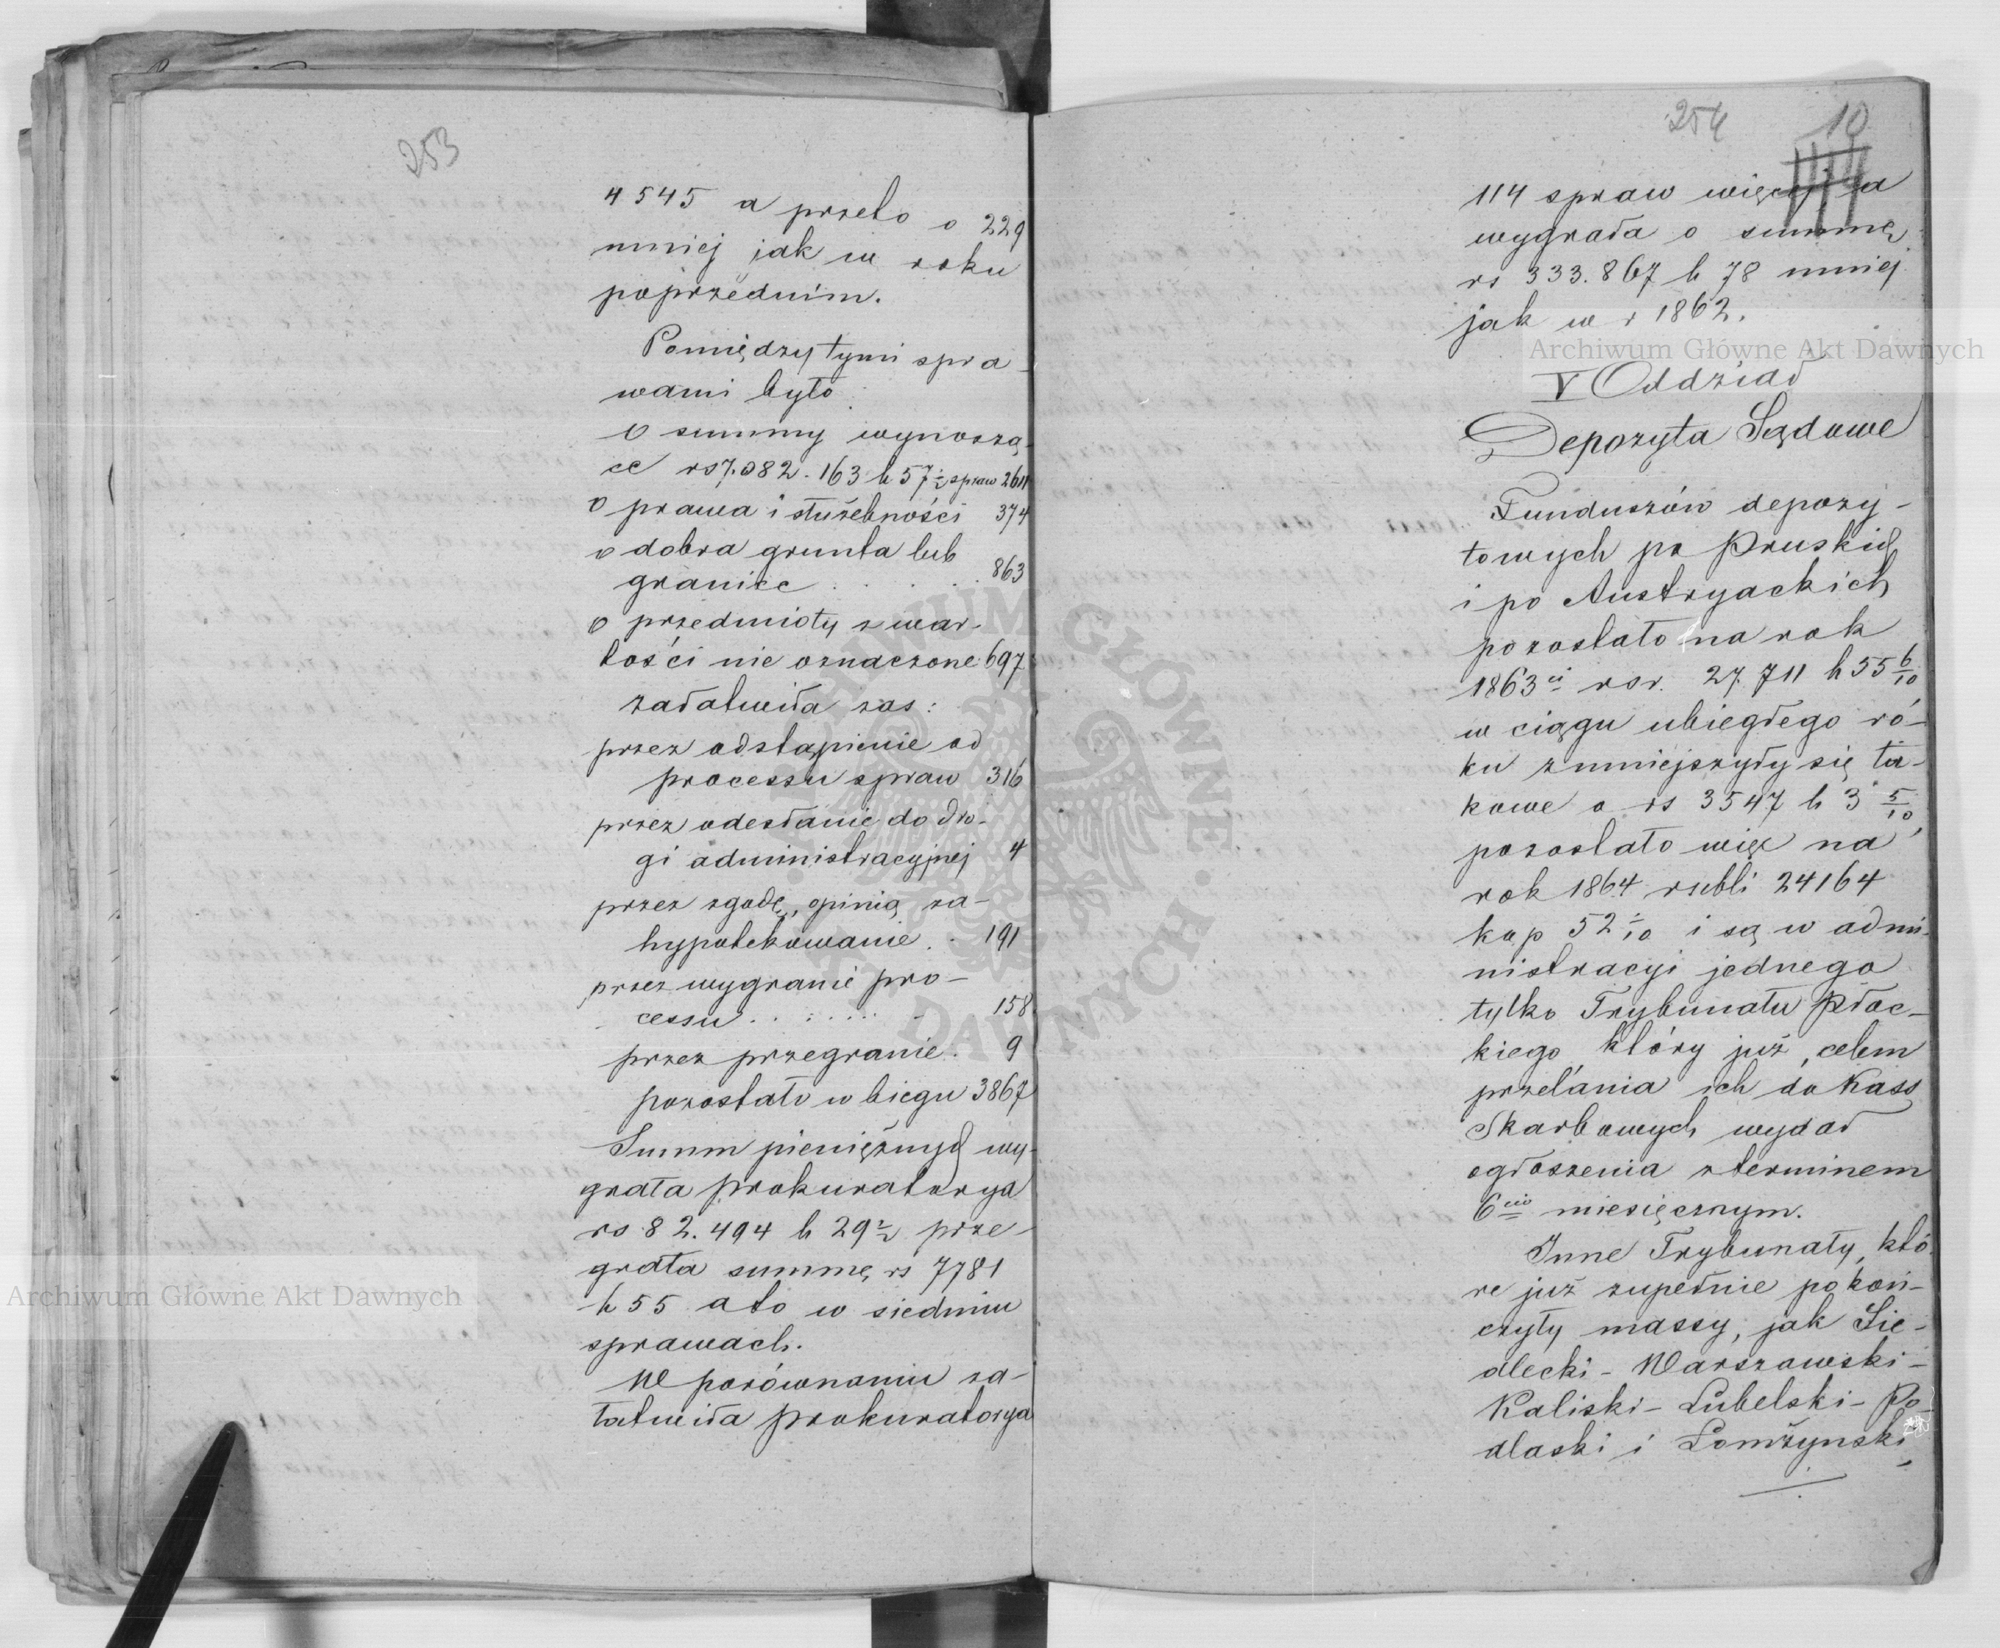 253
4545 a przeto o 229
mniej jak w roku
poprzednim.
Pomiędzy tymi spra-
wami było
o summy wynoszą-
ce rs 7.082.163 k 57½ spraw 2611
o prawa i służebności 374
o dobra grunta lub
granice . . . . . 863
o przedmioty z war-
tości nie oznaczone 697
załatwiła zas:
przez odstąpienie od
processu spraw 316
przez odesłanie do dro-
gi administracyjnej 4
przez zgodę, opinię za-
hypotekowanie . . 191
przez wygranie pro-
cessu . . . . . . . 158
przez przegranie . 9
pozostało w biegu 3867
Summ pieniężnych wy-
grała prokuratorya
rs 82.494 k 29½ prze-
grała summę rs 7781
k 55 a to w siedmiu
sprawach.
W porównaniu za-
łatwiła prokuratorya
254 10
114 spraw więcej a
wygrała o summę
rs 333.867 k 78 mniej
jak w r 1862.
V Oddział
Depozyta Sądowe
Funduszów depozy-
towych po Pruskich
i po Austryackich
pozostało na rok
1863ci rsr. 27.711 k 55 6/10
w ciągu ubiegłego ró-
ku zmniejszyły się ta-
kowe o rs 3547 k 3 5/10,
pozostało więc na
rok 1864 rubli 24164
kop 52 1/10 i są w admi-
nistracyi jednego
tylko Trybunału Płoc-
kiego który już, celem
przelania ich do Kass
Skarbowych wydał
ogłoszenia z terminem
6cio miesięcznym.
Inne Trybunały, któ-
re już zupełnie pokoń-
czyły massy, jak Sie-
dlecki - Warszawski -
Kaliski - Lubelski - Po-
dlaski i Łomżynski,
Archiwum Główne Akt Dawnych
Archiwum Główne Akt Dawnych
ARCHIWUM GŁÓWNE AKT DAWNYCH